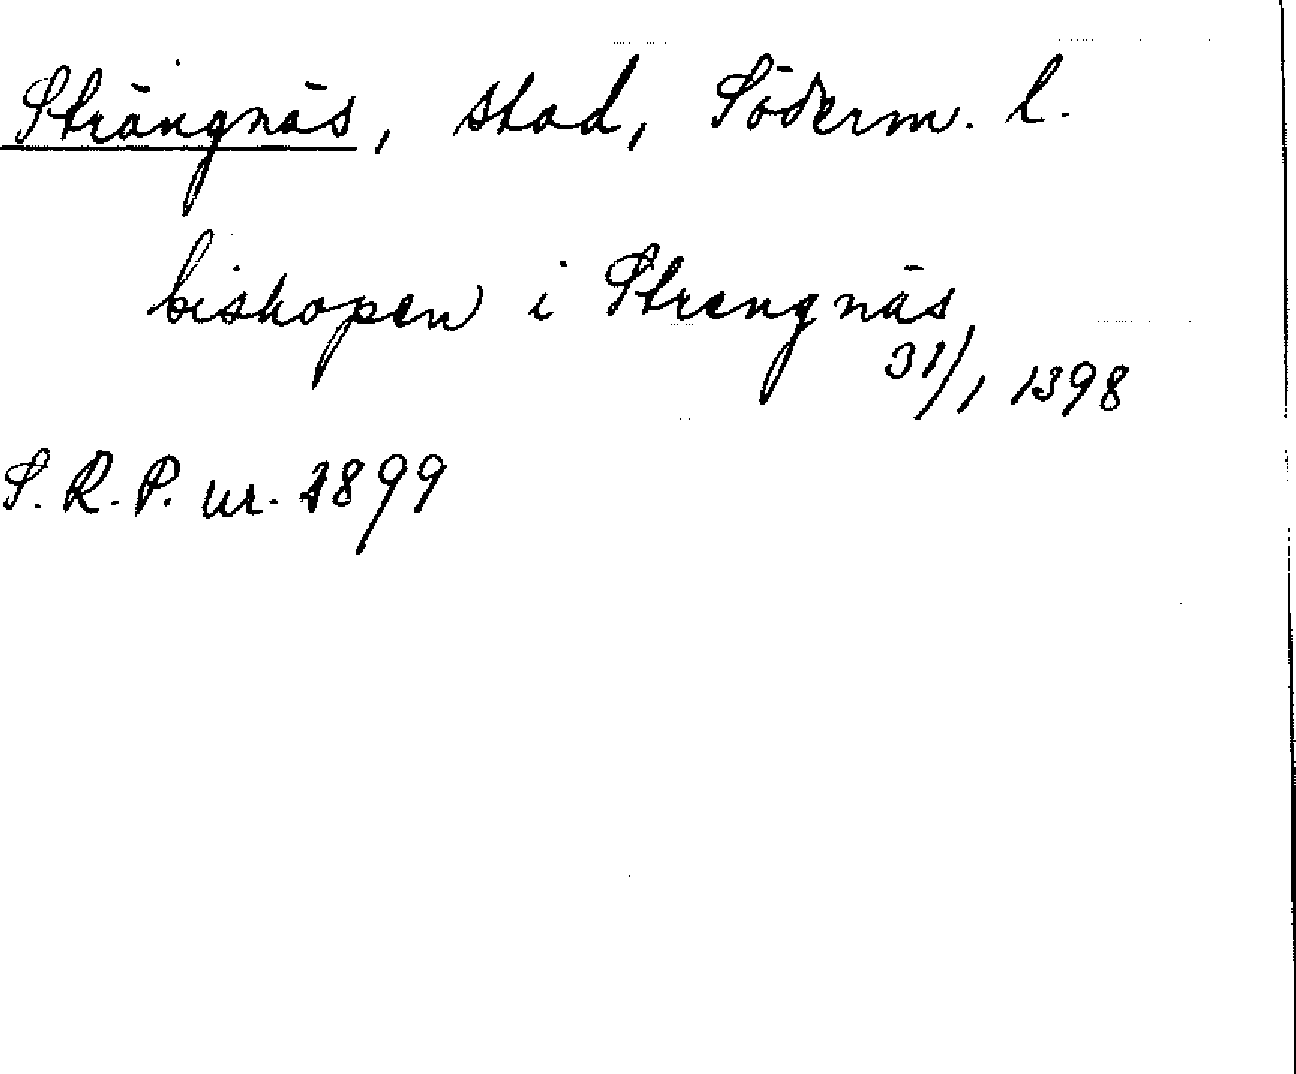 Strängnäs, stad, Söderm. l.
biskopen i Strengnäs
31/1 1398
S. R. P. nr. 2899